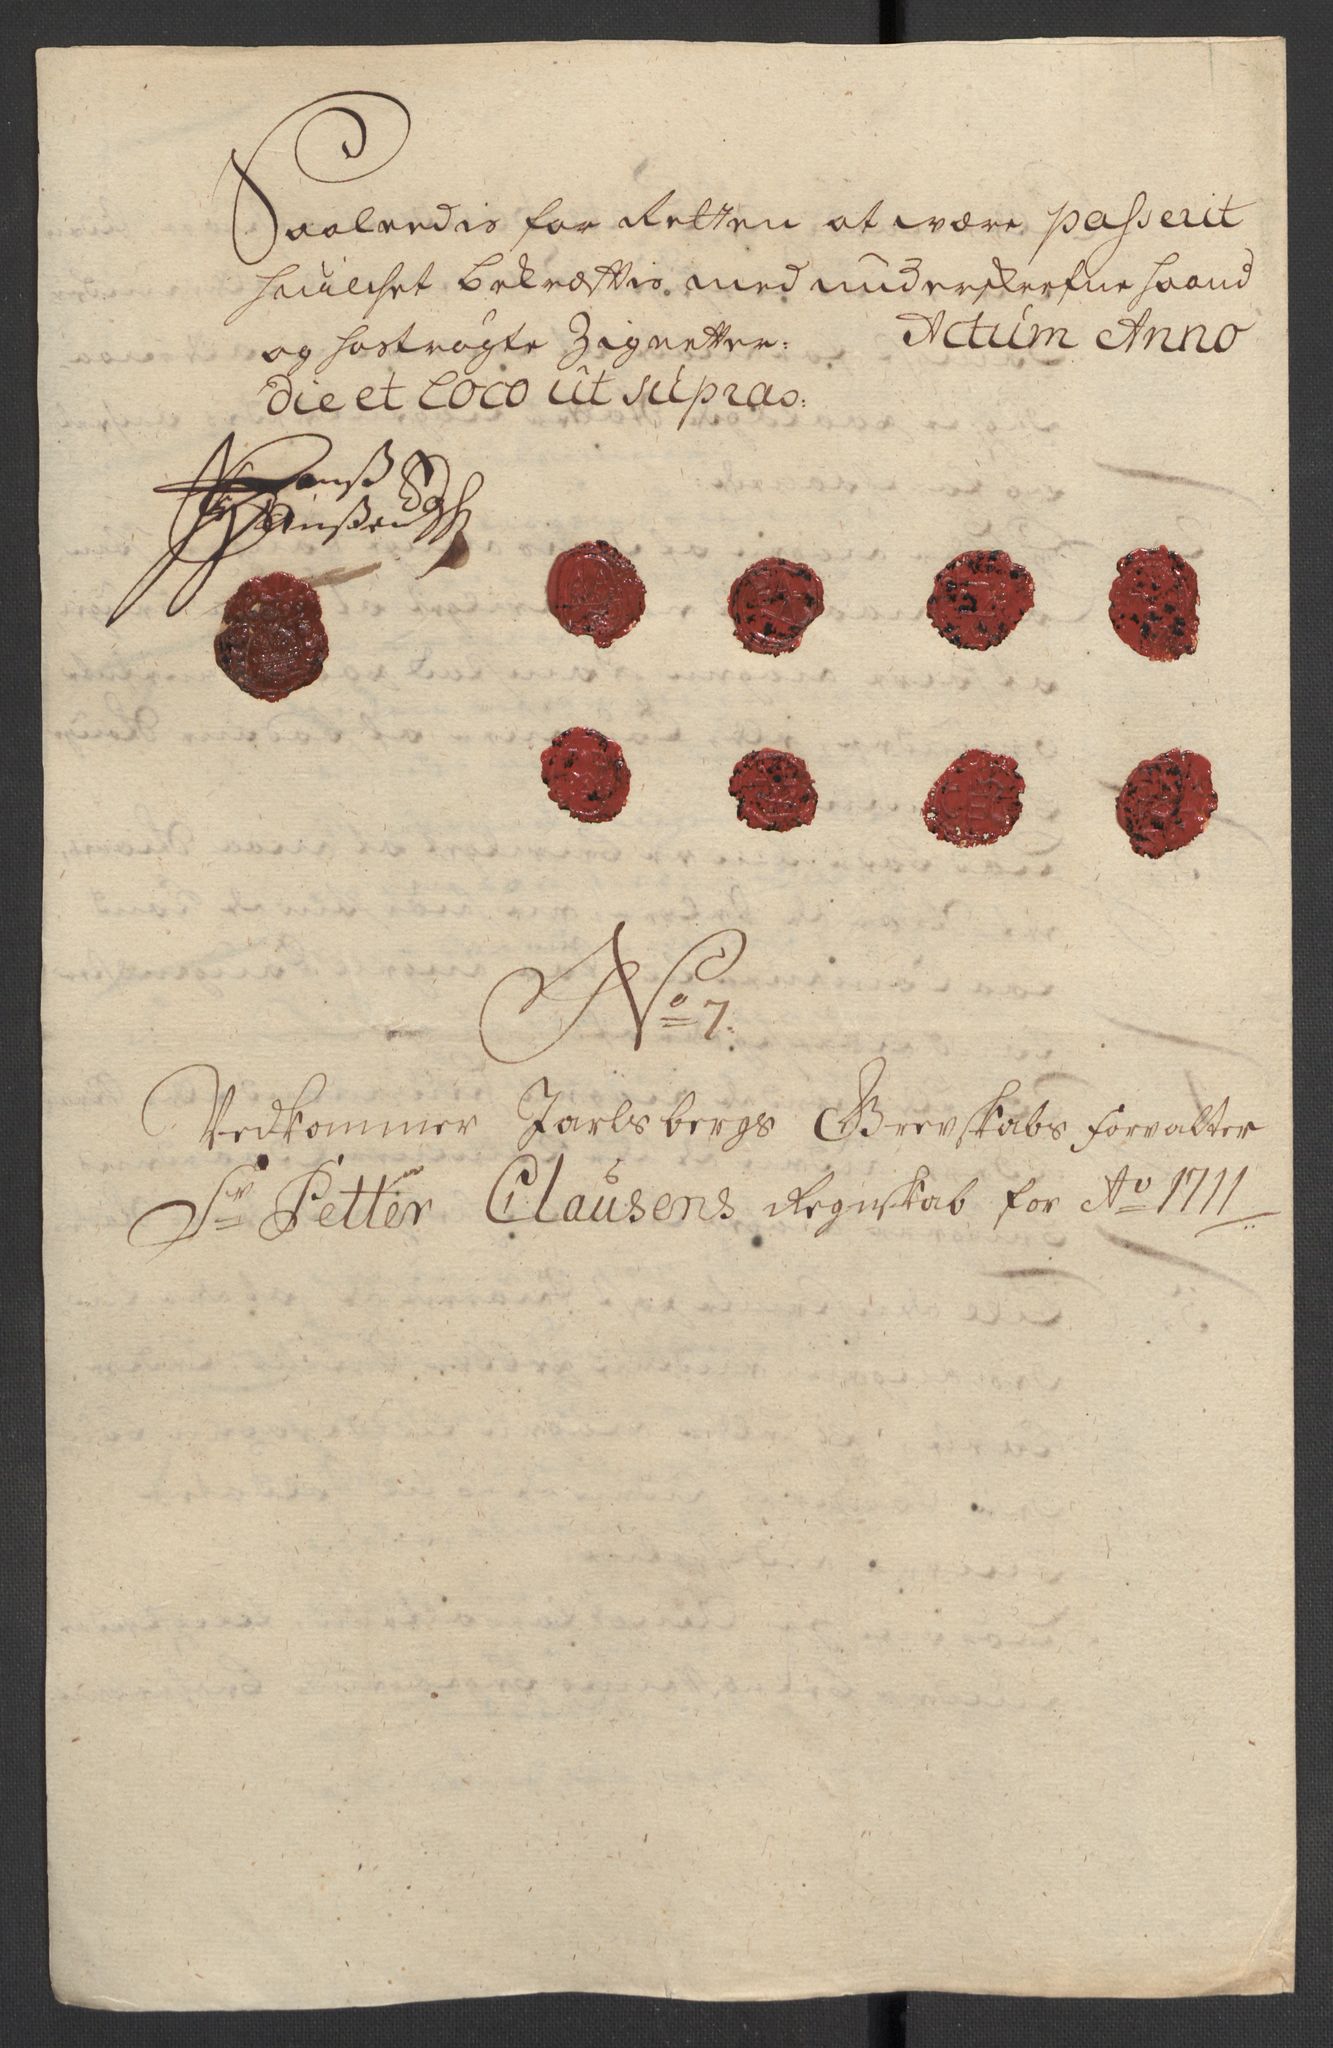 Saaledis for Retten at være passerit
huilchet bekræfftis med underskrefne haand
og hoströgte Zignetter: Actum Anno
Die et Loco ut supras:
Hanß
Hanßen
No 7.
Vedkommer Jarlsbergs Grevskabs forvalter
Sr Petter Clausens Regnskab for Ao 1711